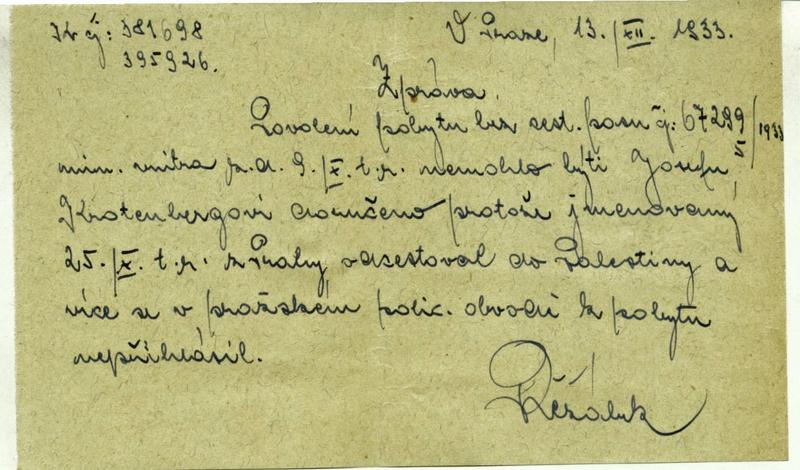 K čj: 381698
395926.
V Praze, 13./XII. 1933.
Zpráva.
Povolení pobytu bez cest. pasu čj: 67299/1933
V
min. vnitra z. d. 9./X. t.r. nemohlo býti Josefu
Krotenbergovi doručeno protože jmenovaný
25./X. t.r. z Prahy odcestoval do Palestiny a
více se v pražském polic. obvodě k pobytu
nepřihlásil.